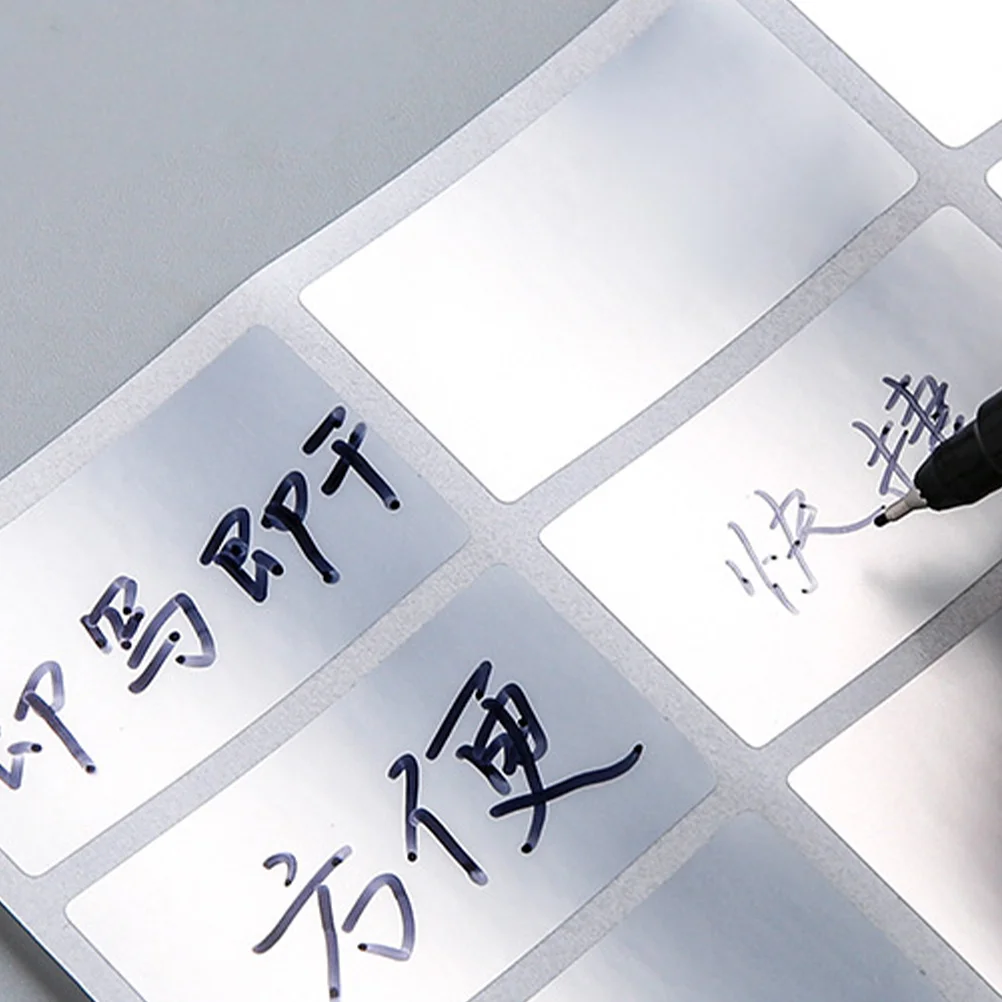 即写即干
方便
快捷